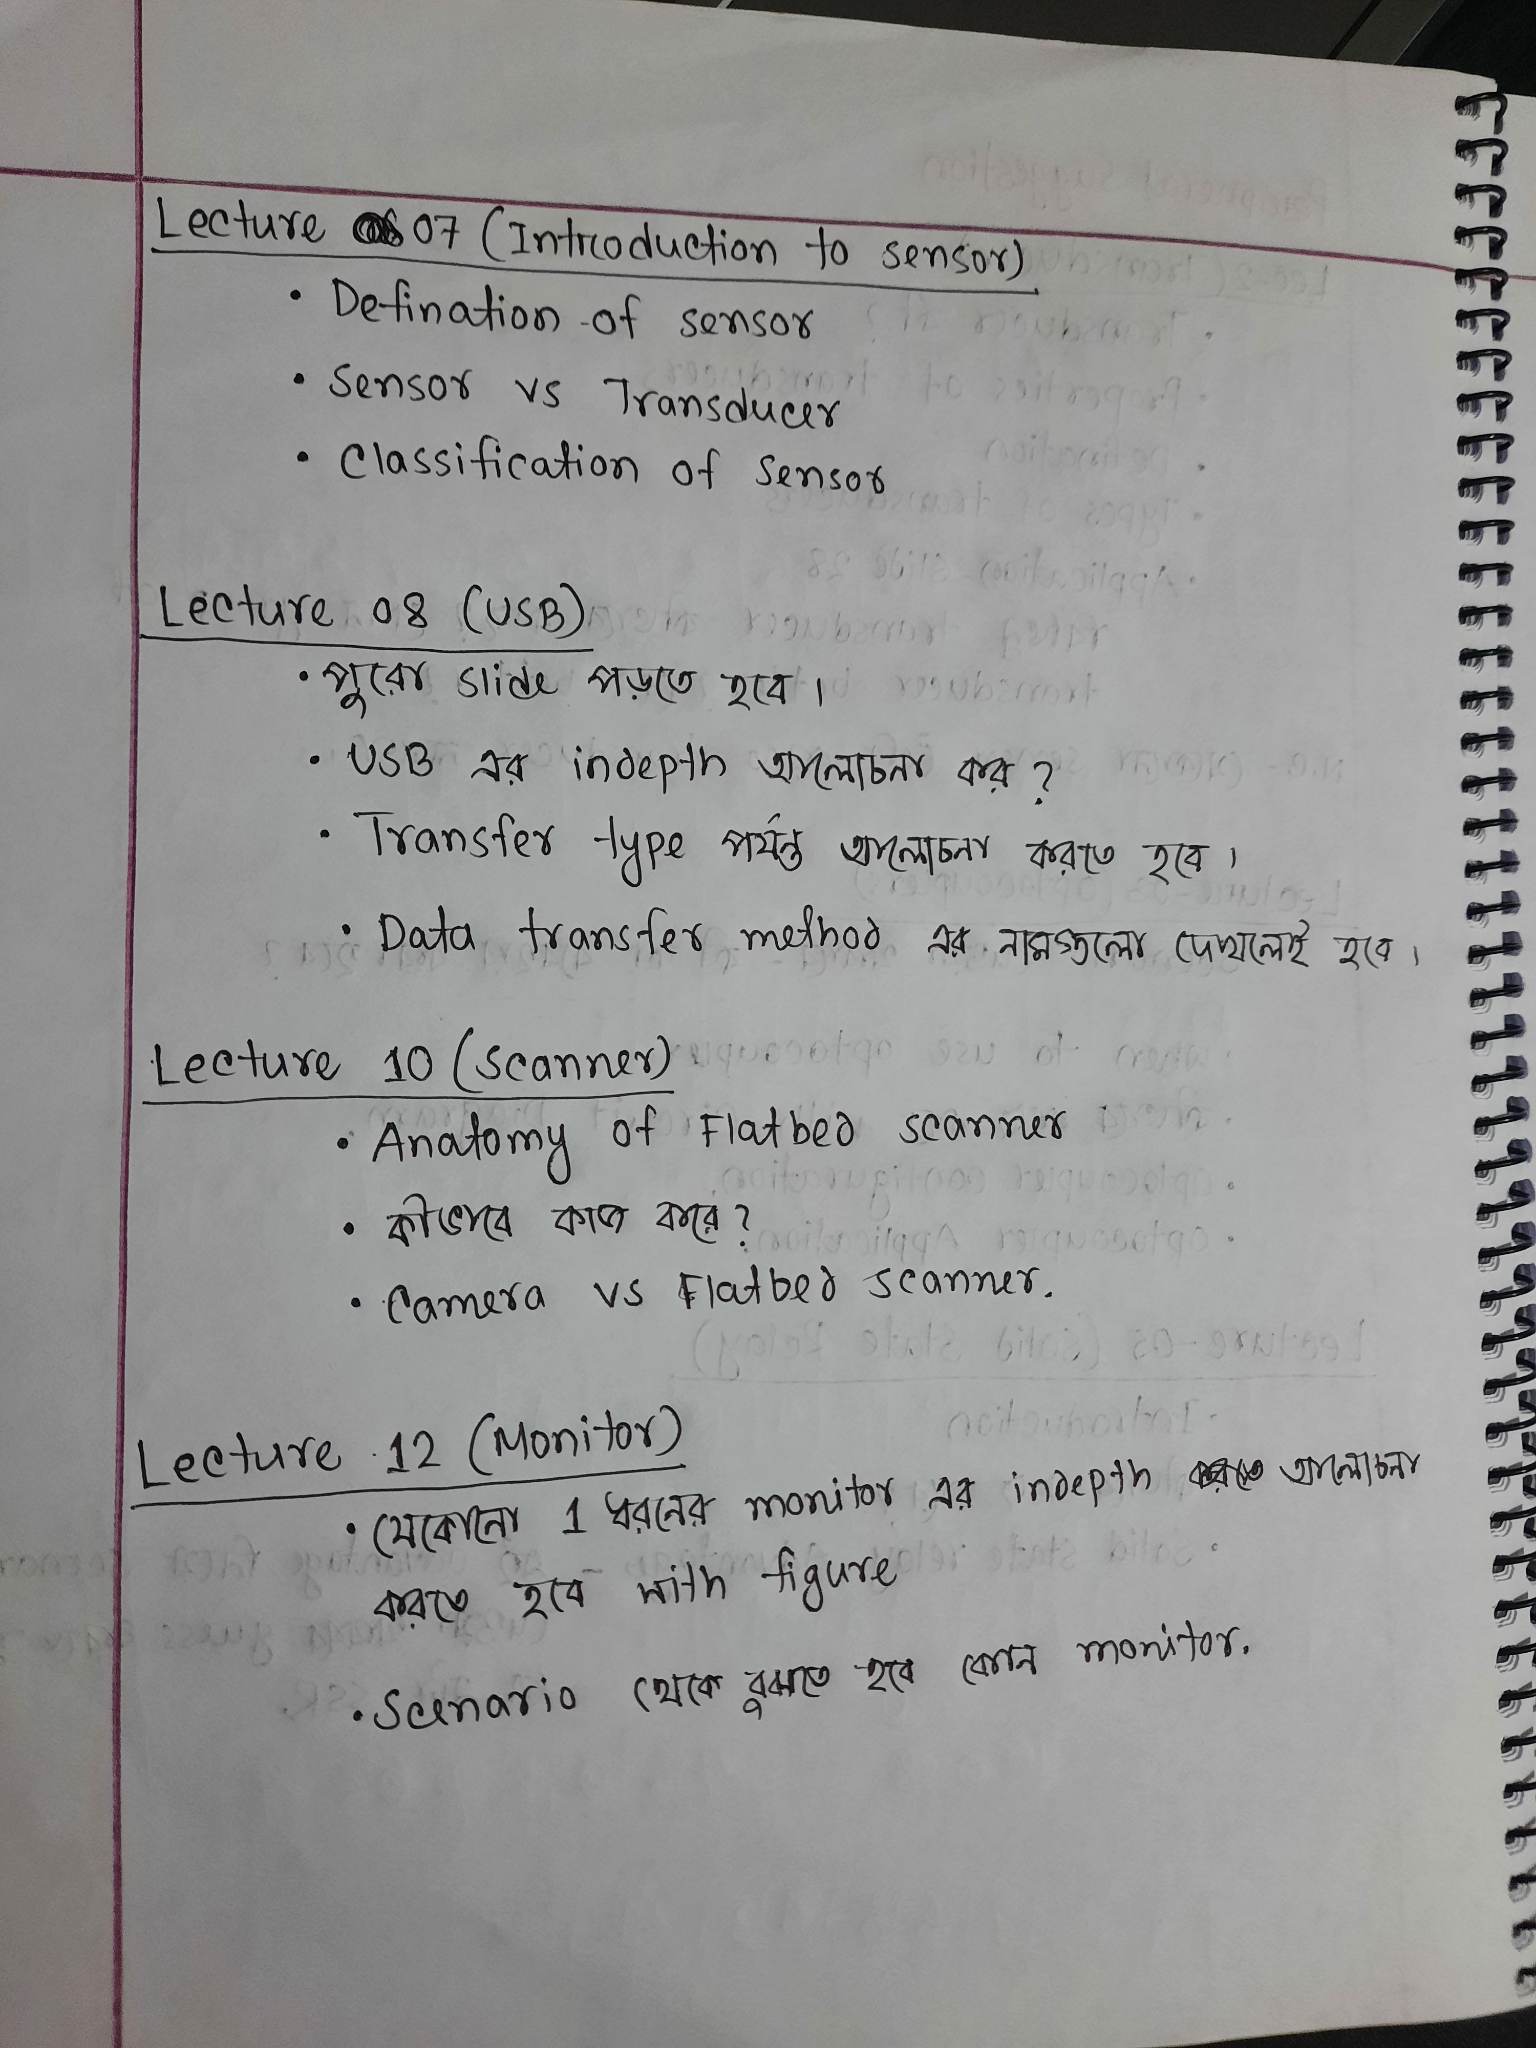 Lecture 07 (Introduction to sensor)
• Defination of sensor
• Sensor vs Transducer
• Classification of Sensor
Lecture 08 (USB)
• পুরো slide পড়তে হবে।
• USB এর indepth আলোচনা কর?
• Transfer type পর্যন্ত আলোচনা করতে হবে।
• Data transfer method এর নামগুলো দেখলেই হবে।
Lecture 10 (Scanner)
• Anatomy of Flatbed scanner
• কীভাবে কাজ করে?
• Camera vs Flatbed scanner.
Lecture 12 (Monitor)
• যেকোনো 1 ধরনের monitor এর indepth আলোচনা
করতে হবে with figure
• Scenario থেকে বুঝতে হবে কোন monitor.